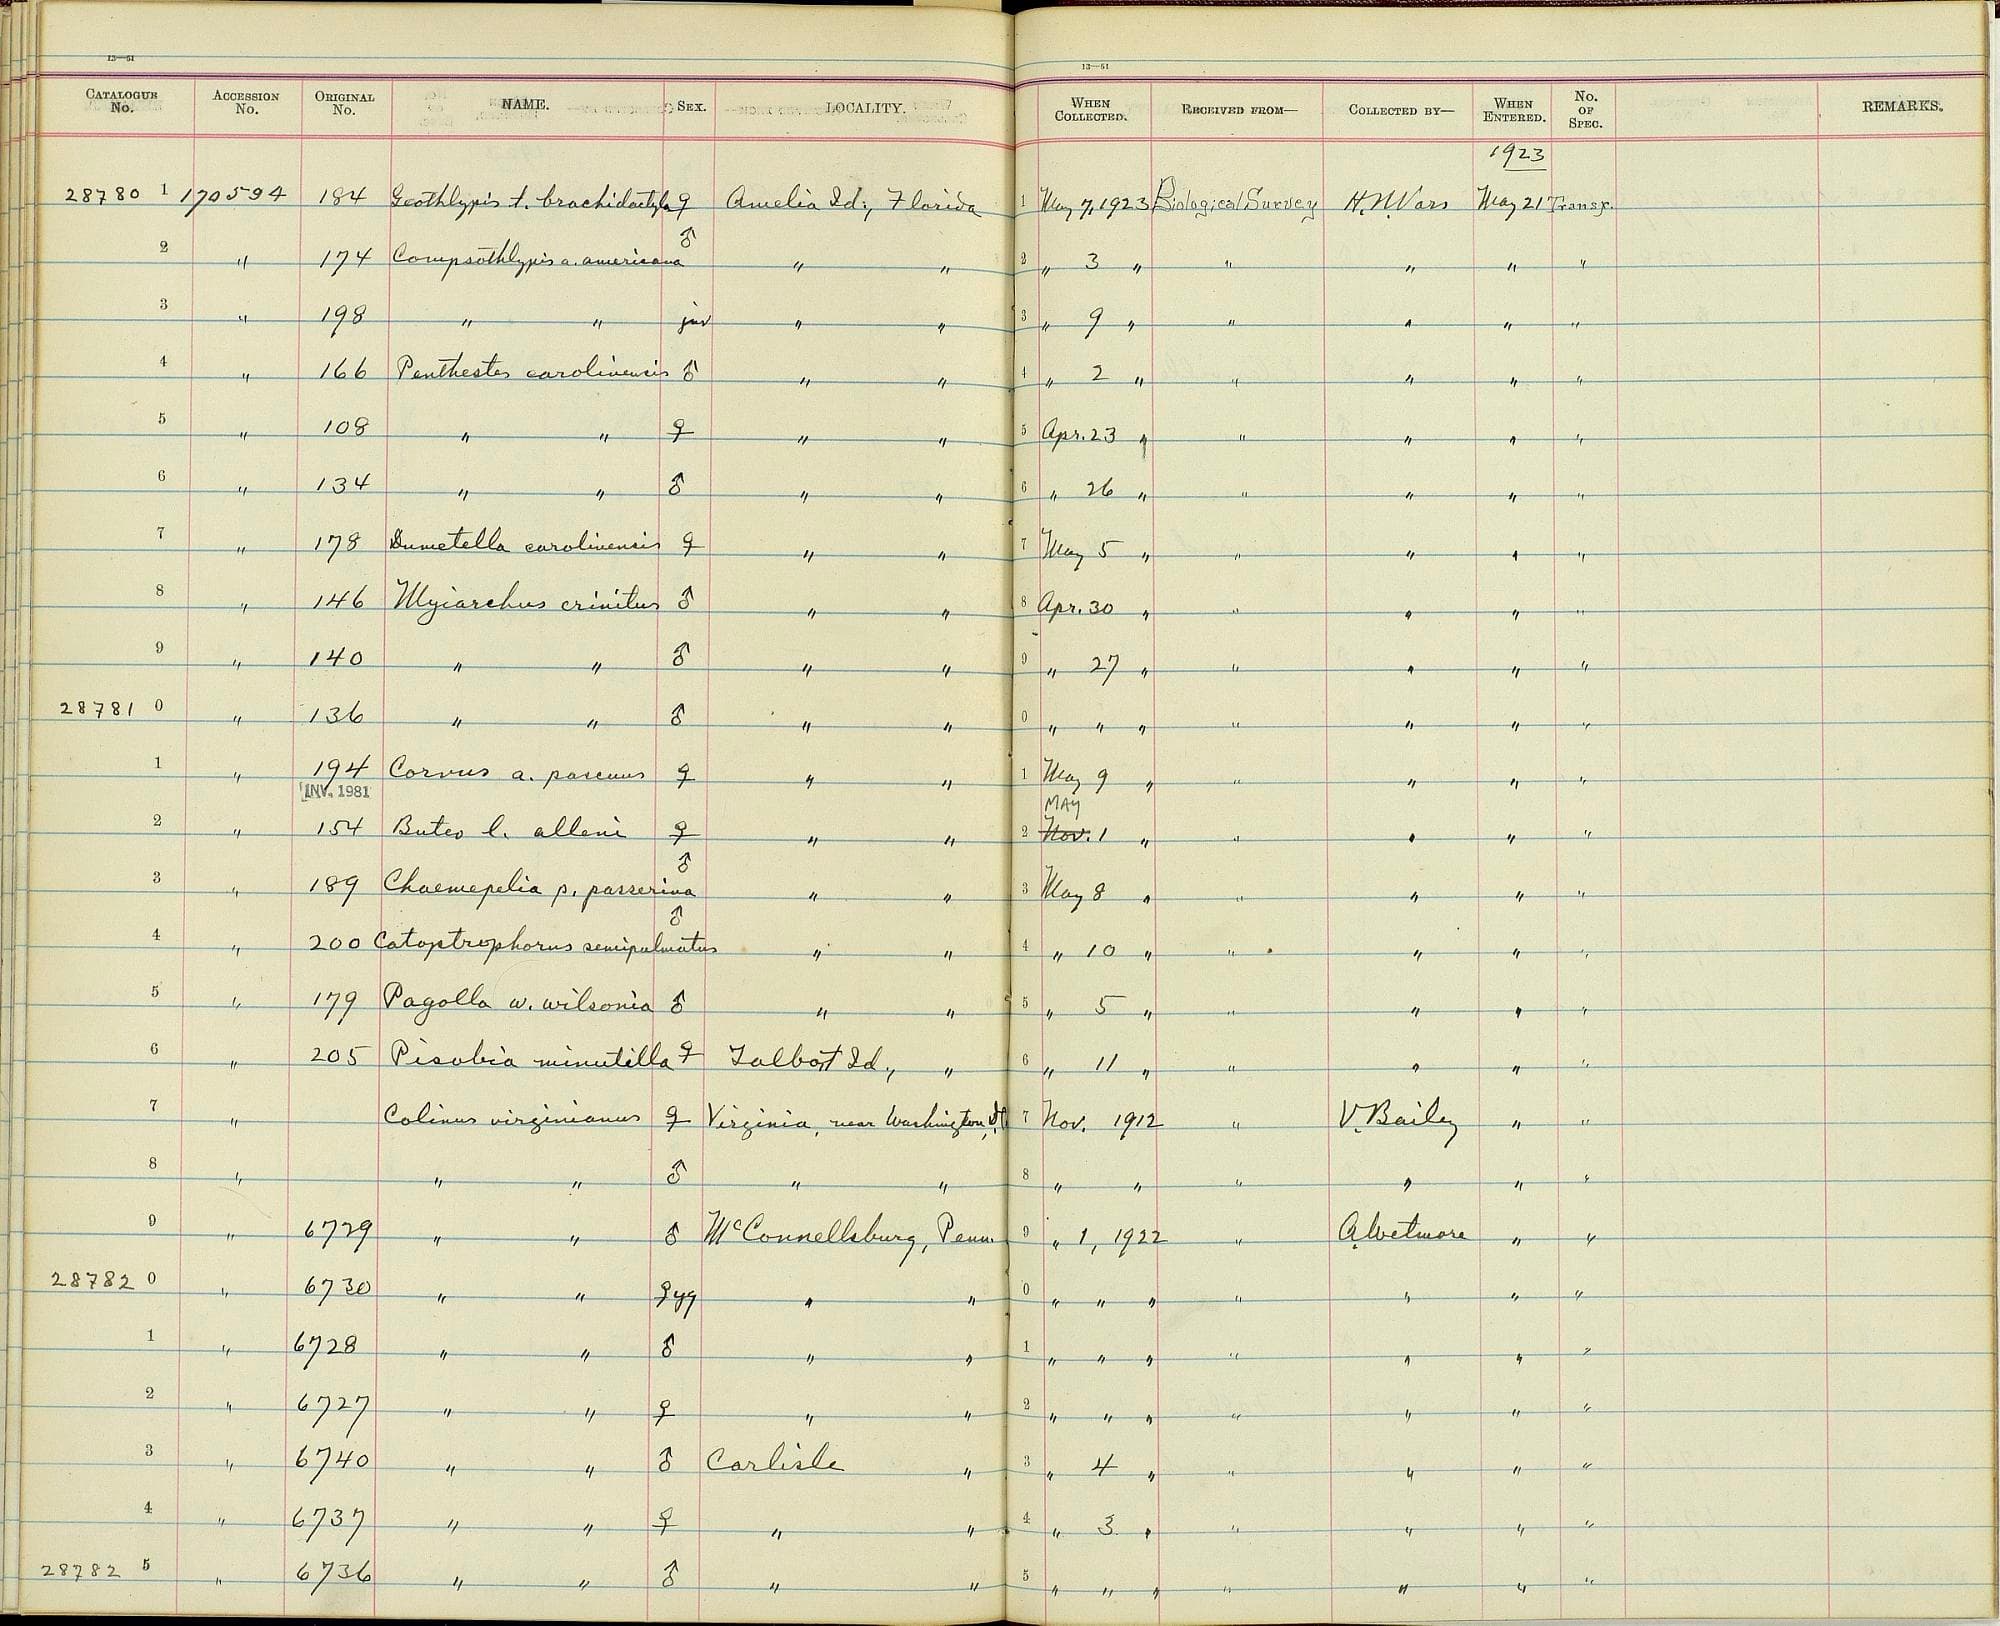 13—51
13—51
CATALOGUE No. ACCESSION No. ORIGINAL No. NAME. SEX. LOCALITY. WHEN COLLECTED. RECEIVED FROM— COLLECTED BY— WHEN ENTERED. No. OF SPEC. REMARKS.
1923
28780 1 170594 184 Geothlypis t. brachidactyla ♀ Amelia Id., Florida 1 May 7, 1923 Biological Survey H.N.Vars May 21 Transf.
2 " 174 Compsothlypis a. americana ♂ " " 2 " 3 " " " " "
3 " 198 " " juv " " 3 " 9 " " " " "
4 " 166 Penthestes carolinensis ♂ " " 4 " 2 " " " " "
5 " 108 " " ♀ " " 5 Apr. 23 " " " " "
6 " 134 " " ♂ " " 6 " 26 " " " " "
7 " 178 Dumetella carolinensis ♀ " " 7 May 5 " " " " "
8 " 146 Myiarchus crinitus ♂ " " 8 Apr. 30 " " " " "
9 " 140 " " ♂ " " 9 " 27 " " " " "
28781 0 " 136 " " ♂ " " 0 " " " " " " "
1 " 194 Corvus a. pascuus ♀ " " 1 May 9 " " " " "
INV. 1981
MAY
2 " 154 Buteo l. alleni ♀ " " 2 Nov. 1 " " " " "
3 " 189 Chaemepelia p. passerina ♂ " " 3 May 8 " " " " "
4 " 200 Catoptrophorus semipalmatus ♂ " " 4 " 10 " " " " "
5 " 179 Pagolla w. wilsonia ♂ " " 5 " 5 " " " " "
6 " 205 Pisobia minutilla ♀ Talbot Id., " 6 " 11 " " " " "
7 " Colinus virginianus ♀ Virginia, near Washington, D.C. 7 Nov. 1912 " V. Bailey " "
8 " " " ♂ " " 8 " " " " " "
9 " 6729 " " ♂ McConnellsburg, Penn. 9 " 1, 1922 " A.Wetmore " "
28782 0 " 6730 " " ♀ yg " " 0 " " " " " " "
1 " 6728 " " ♂ " " 1 " " " " " " "
2 " 6727 " " ♀ " " 2 " " " " " " "
3 " 6740 " " ♂ Carlisle " 3 " 4 " " " " "
4 " 6737 " " ♀ " " 4 " 3 " " " " "
28782 5 " 6736 " " ♂ " " 5 " " " " " " "